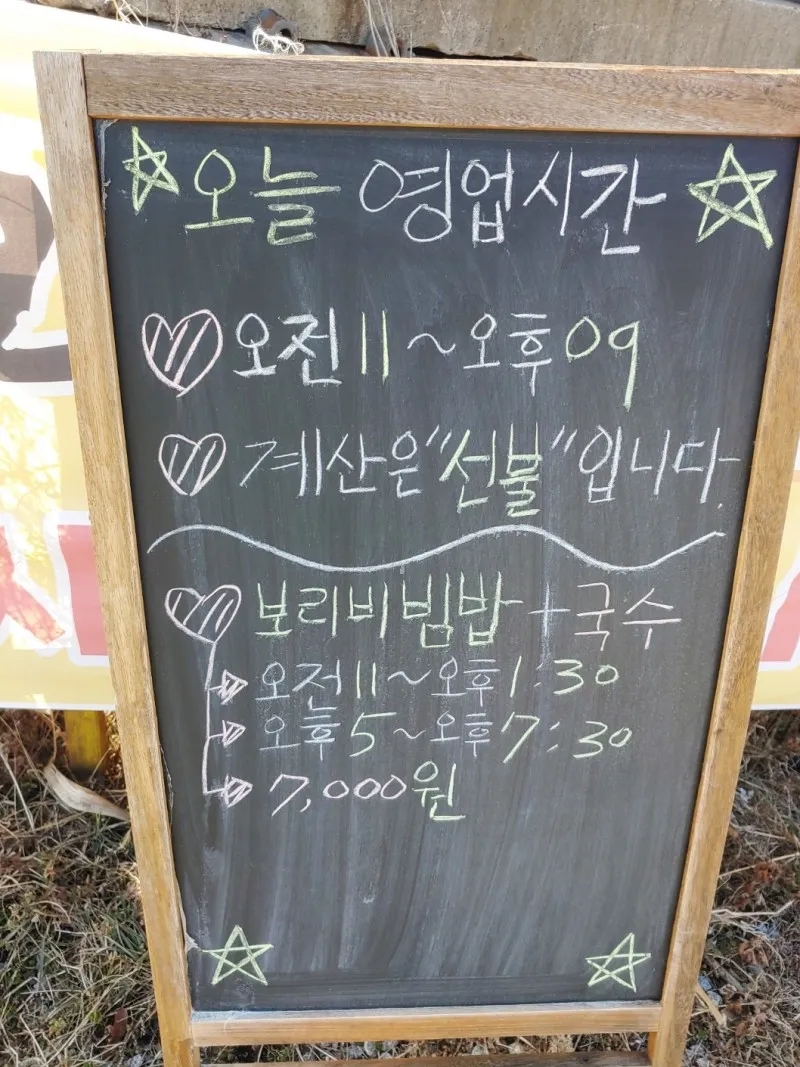 오늘 영업시간
오전 11 ~ 오후 09
계산은 "선불" 입니다.
보리비빔밥 + 국수
오전 11 ~ 오후 1:30
오후 5 ~ 오후 7:30
7,000원